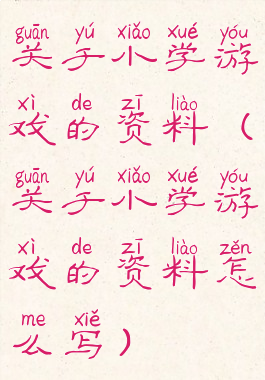 guān yú xiǎo xué yóu
关于小学游
xì de zī liào
戏的资料（
guān yú xiǎo xué yóu
关于小学游
xì de zī liào zěn
戏的资料怎
me xiě
么写）